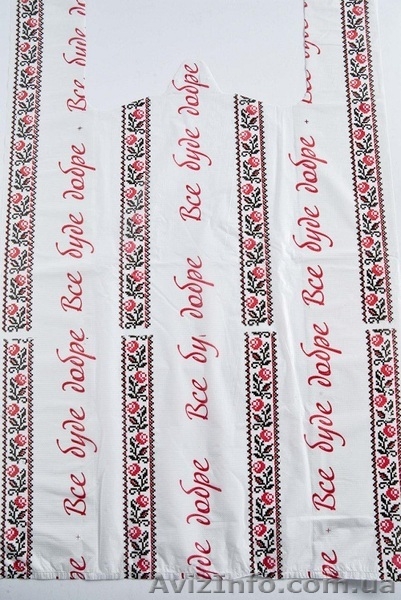 Все буде добре
Все буде добре
Все буде
буде добре
Все бу добре
Все буде добре
добре
Все буде добре
Все буде добре
Все
AvizInfo.com.ua